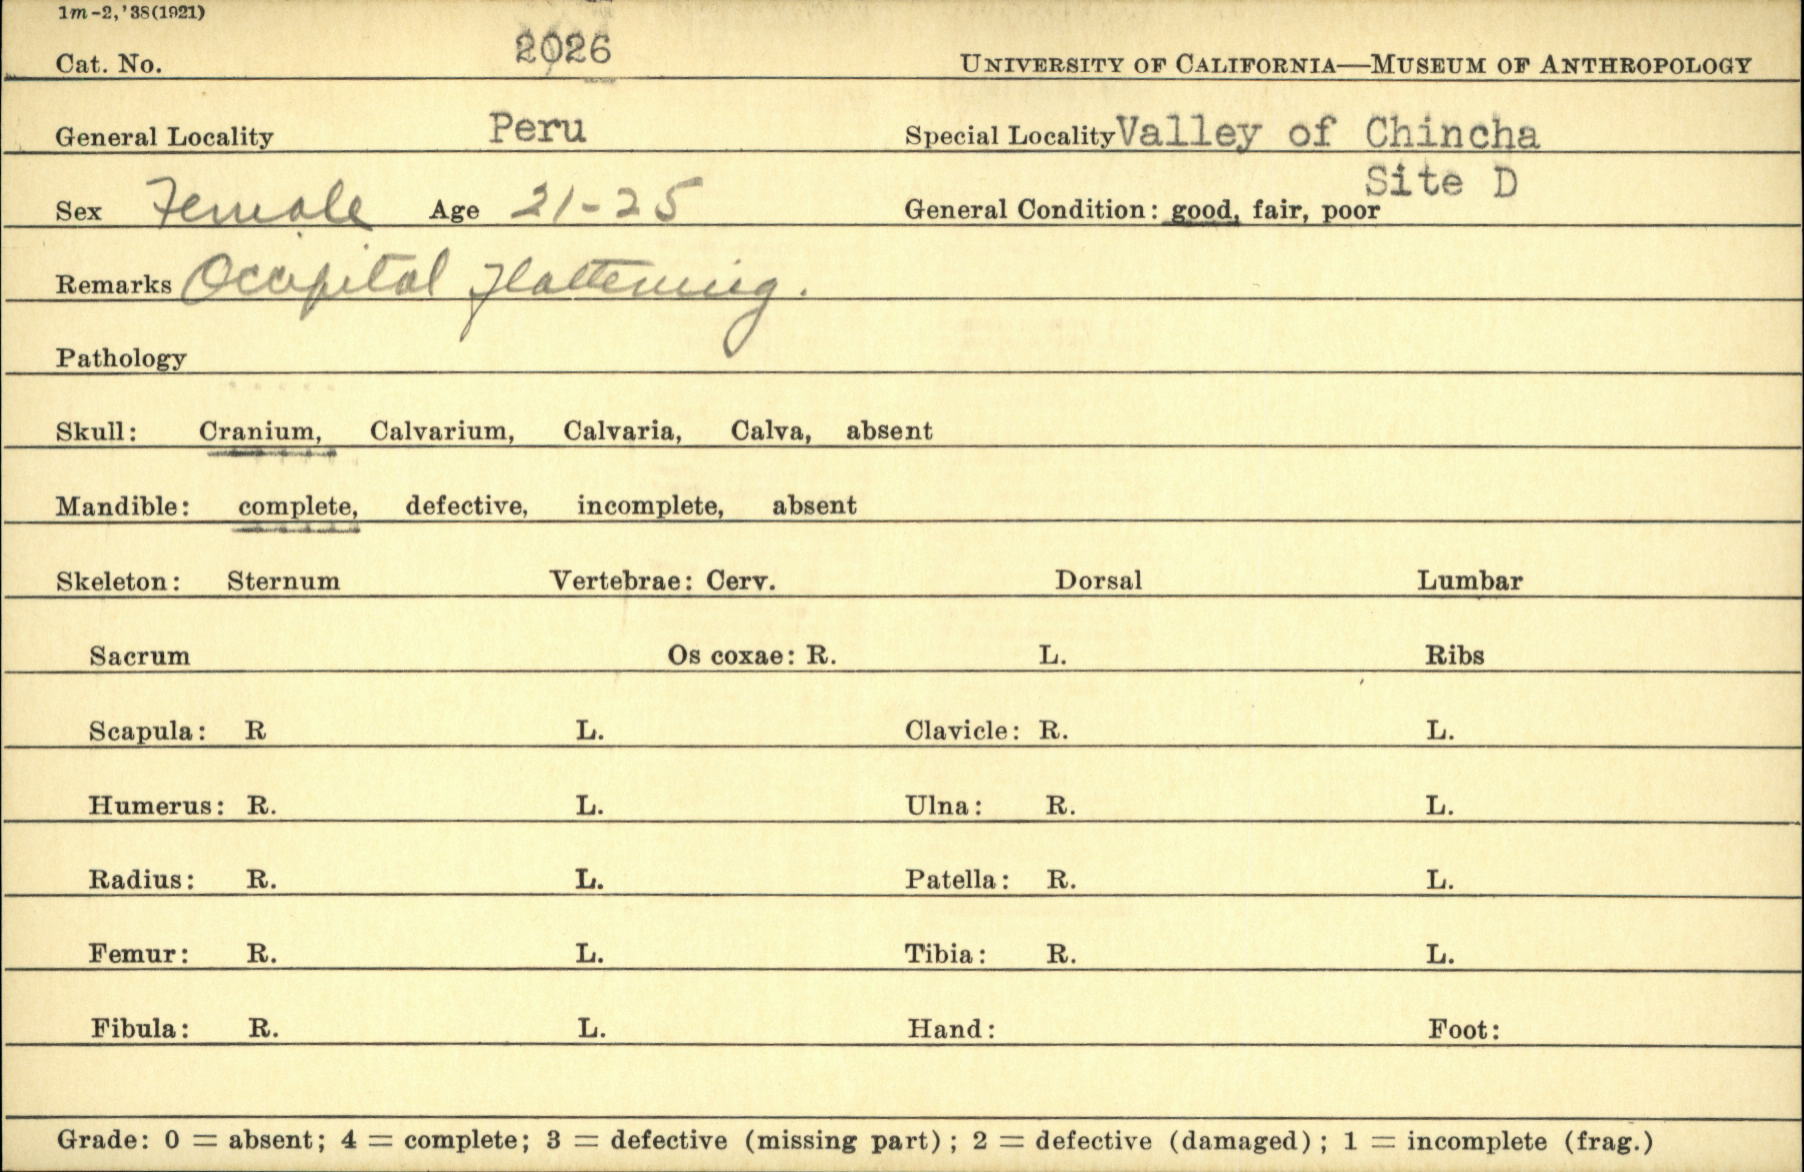 1m-2,'38(1921)
Cat. No. 2026 UNIVERSITY OF CALIFORNIA—MUSEUM OF ANTHROPOLOGY
General Locality Peru Special Locality Valley of Chincha
Site D
Sex Female Age 21-25 General Condition: good, fair, poor
Remarks Occipital flattening.
Pathology
Skull: Cranium, Calvarium, Calvaria, Calva, absent
Mandible: complete, defective, incomplete, absent
Skeleton: Sternum Vertebrae: Cerv. Dorsal Lumbar
Sacrum Os coxae: R. L. Ribs
Scapula: R L. Clavicle: R. L.
Humerus: R. L. Ulna: R. L.
Radius: R. L. Patella: R. L.
Femur: R. L. Tibia: R. L.
Fibula: R. L. Hand: Foot:
Grade: 0 = absent; 4 = complete; 3 = defective (missing part); 2 = defective (damaged); 1 = incomplete (frag.)